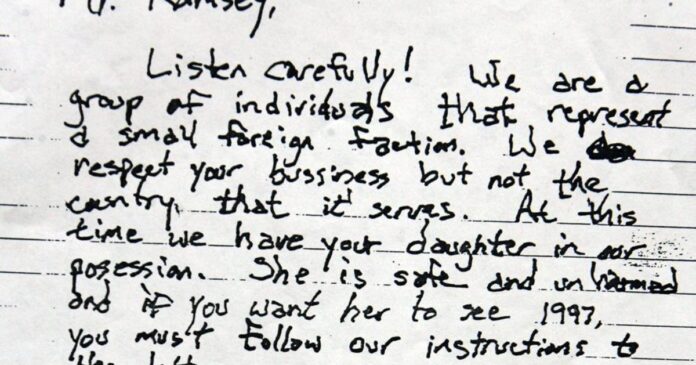 Mr. Ramsey,
Listen carefully! We are a
group of individuals that represent
a small foreign faction. We
respect your bussiness but not the
country that it serves. At this
time we have your daughter in our
posession. She is safe and unharmed
and if you want her to see 1997,
you must follow our instructions to